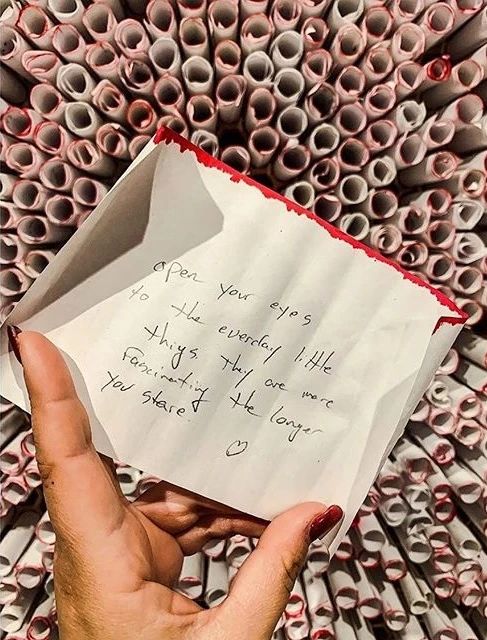 open your eyes
to the everday little
things. they are more
Fascinating the longer
you stare.